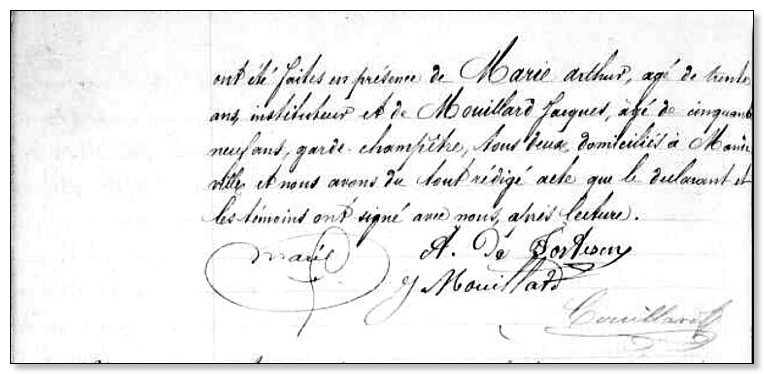 ont été faites en présence de Marie Arthur, agé de trente
ans, instituteur et de Mouillard Jacques, âgé de cinquante
neuf ans, garde-champêtre, tous deux domiciliés à
ville et nous avons du tout rédigé acte que le déclarant et
les témoins ont signé avec nous, après lecture.
Marie A. de
J Mouillard
Couillard